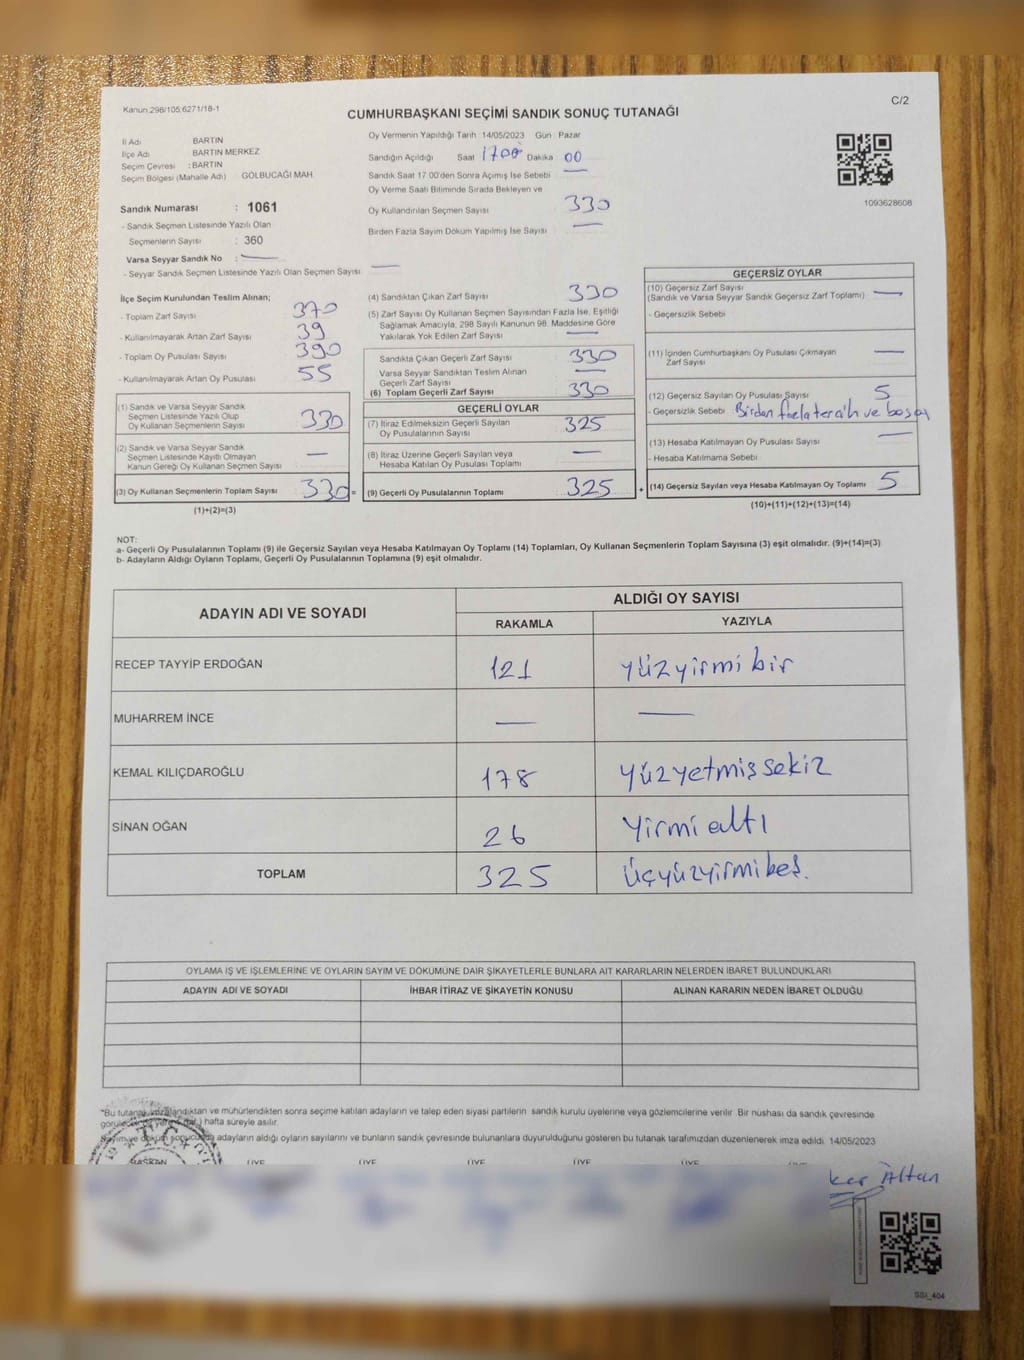 Kanun:298/105;6271/18-1
C/2
CUMHURBAŞKANI SEÇİMİ SANDIK SONUÇ TUTANAĞI
İl Adı BARTIN
İlçe Adı BARTIN MERKEZ
Seçim Çevresi : BARTIN
Seçim Bölgesi (Mahalle Adı) GÖLBUCAĞI MAH
Sandık Numarası : 1061
- Sandık Seçmen Listesinde Yazılı Olan
Seçmenlerin Sayısı : 360
Varsa Seyyar Sandık No : —
- Seyyar Sandık Seçmen Listesinde Yazılı Olan Seçmen Sayısı —
Oy Vermenin Yapıldığı Tarih :14/05/2023 Gün : Pazar
Sandığın Açıldığı Saat 1700 Dakika 00
Sandık Saat 17.00'den Sonra Açımış İse Sebebi —
Oy Verme Saati Bitiminde Sırada Bekleyen ve
Oy Kullandırılan Seçmen Sayısı 330
Birden Fazla Sayım Döküm Yapılmış İse Sayısı —
1093628608
İlçe Seçim Kurulundan Teslim Alınan;
- Toplam Zarf Sayısı 370
- Kullanılmayarak Artan Zarf Sayısı 39
- Toplam Oy Pusulası Sayısı 390
- Kullanılmayarak Artan Oy Pusulası 55
(1) Sandık ve Varsa Seyyar Sandık
Seçmen Listesinde Yazılı Olup
Oy Kullanan Seçmenlerin Sayısı 330
(2) Sandık ve Varsa Seyyar Sandık
Seçmen Listesinde Kayıtlı Olmayan
Kanun Gereği Oy Kullanan Seçmen Sayısı —
(3) Oy Kullanan Seçmenlerin Toplam Sayısı 330 =
(1)+(2)=(3)
(4) Sandıktan Çıkan Zarf Sayısı 330
(5) Zarf Sayısı Oy Kullanan Seçmen Sayısından Fazla İse, Eşitliği
Sağlamak Amacıyla; 298 Sayılı Kanunun 98. Maddesine Göre
Yakılarak Yok Edilen Zarf Sayısı —
Sandıkta Çıkan Geçerli Zarf Sayısı 330
Varsa Seyyar Sandıktan Teslim Alınan
Geçerli Zarf Sayısı —
(6) Toplam Geçerli Zarf Sayısı 330
GEÇERLİ OYLAR
(7) İtiraz Edilmeksizin Geçerli Sayılan
Oy Pusulalarının Sayısı 325
(8) İtiraz Üzerine Geçerli Sayılan veya
Hesaba Katılan Oy Pusulası Toplamı —
(9) Geçerli Oy Pusulalarının Toplamı 325 +
GEÇERSİZ OYLAR
(10) Geçersiz Zarf Sayısı
(Sandık ve Varsa Seyyar Sandık Geçersiz Zarf Toplamı) —
- Geçersizlik Sebebi
(11) İçinden Cumhurbaşkanı Oy Pusulası Çıkmayan
Zarf Sayısı —
(12) Geçersiz Sayılan Oy Pusulası Sayısı 5
- Geçersizlik Sebebi Birden fazla tercih ve boş oy
(13) Hesaba Katılmayan Oy Pusulası Sayısı —
- Hesaba Katılmama Sebebi
(14) Geçersiz Sayılan veya Hesaba Katılmayan Oy Toplamı 5
(10)+(11)+(12)+(13)=(14)
NOT:
a- Geçerli Oy Pusulalarının Toplamı (9) ile Geçersiz Sayılan veya Hesaba Katılmayan Oy Toplamı (14) Toplamları, Oy Kullanan Seçmenlerin Toplam Sayısına (3) eşit olmalıdır. (9)+(14)=(3)
b- Adayların Aldığı Oyların Toplamı, Geçerli Oy Pusulalarının Toplamına (9) eşit olmalıdır.
ADAYIN ADI VE SOYADI ALDIĞI OY SAYISI
RAKAMLA YAZIYLA
RECEP TAYYİP ERDOĞAN 121 yüzyirmi bir
MUHARREM İNCE — —
KEMAL KILIÇDAROĞLU 178 yüzyetmiş sekiz
SİNAN OĞAN 26 Yirmi altı
TOPLAM 325 Üçyüzyirmibeş.
OYLAMA İŞ VE İŞLEMLERİNE VE OYLARIN SAYIM VE DÖKÜMÜNE DAİR ŞİKAYETLERLE BUNLARA AİT KARARLARIN NELERDEN İBARET BULUNDUKLARI
ADAYIN ADI VE SOYADI İHBAR İTİRAZ VE ŞİKAYETİN KONUSU ALINAN KARARIN NEDEN İBARET OLDUĞU
*Bu tutanak imzalandıktan ve mühürlendikten sonra seçime katılan adayların ve talep eden siyasi partilerin sandık kurulu üyelerine veya gözlemcilerine verilir. Bir nüshası da sandık çevresinde
hafta süreyle asılır.
Sayım ve döküm sonucunda adayların aldığı oyların sayılarını ve bunların sandık çevresinde bulunanlara duyurulduğunu gösteren bu tutanak tarafımızdan düzenlenerek imza edildi. 14/05/2023
BAŞKAN ÜYE ÜYE ÜYE ÜYE ÜYE ÜYE
Altan
SSI_404